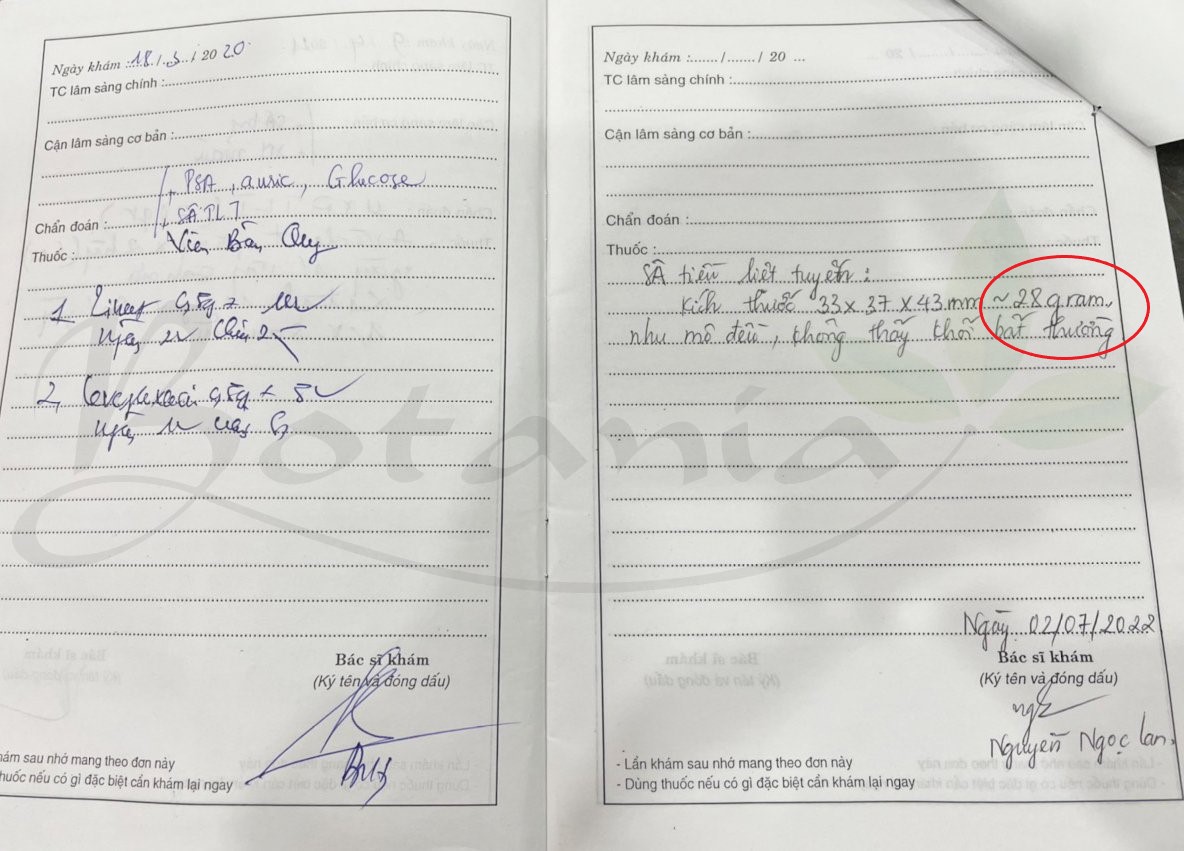 Ngày khám :18./.3../ 20 20.
TC lâm sàng chính :
Cận lâm sàng cơ bản :
PSA, auric, Glucose
SÂ TLT
Chẩn đoán :
Viên Bàng Quy
Thuốc :
1.
2,
Bác sĩ khám
(Ký tên và đóng dấu)
hám sau nhớ mang theo đơn này
huốc nếu có gì đặc biệt cần khám lại ngay
Ngày khám :....../......./ 20 ...
TC lâm sàng chính :
Cận lâm sàng cơ bản :
Chẩn đoán :
Thuốc :
SÂ tiền liệt tuyến :
Kích thước 33 x 37 x 43 mm ~ 28 gram,
nhu mô đều, không thấy khối bất thường
Ngày 02/07/2022
Bác sĩ khám
(Ký tên và đóng dấu)
Nguyễn Ngọc Lan.
- Lần khám sau nhớ mang theo đơn này
- Dùng thuốc nếu có gì đặc biệt cần khám lại ngay
Botania